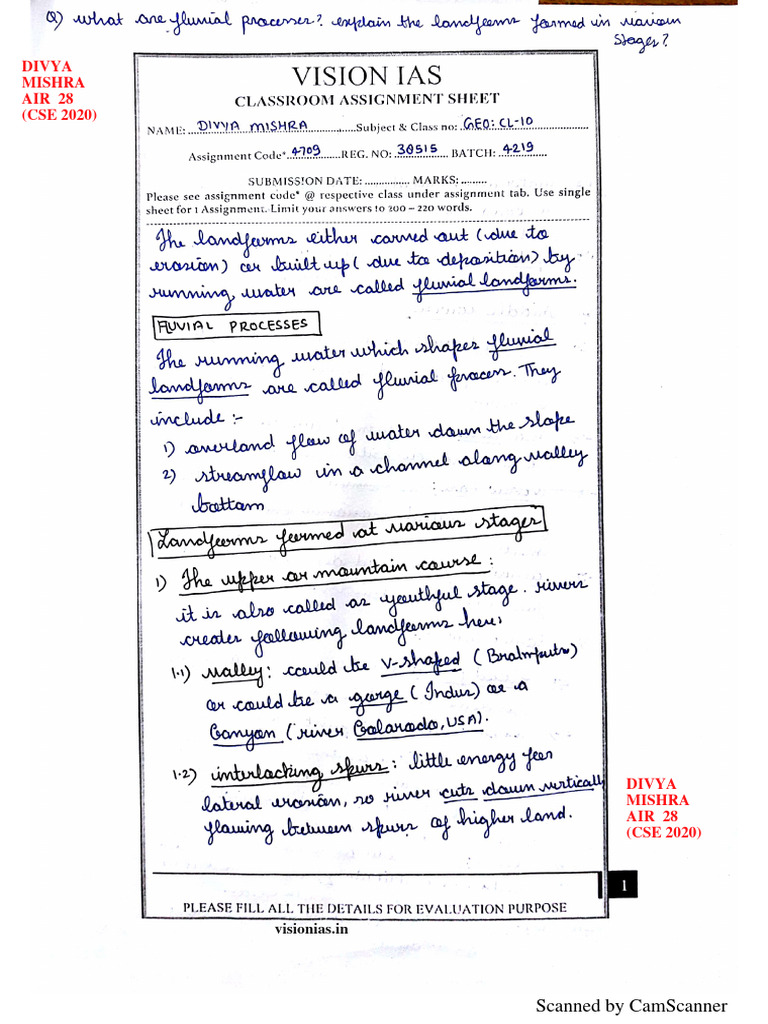 Q) What are fluvial processes? explain the landforms formed in various
stages?
DIVYA
MISHRA
AIR 28
(CSE 2020)
VISION IAS
CLASSROOM ASSIGNMENT SHEET
NAME:...DIVYA MISHRA...............Subject & Class no: GEO: CL-10
Assignment Code*..4709.......REG. NO: 30515 BATCH: 4219
SUBMISSION DATE: ............... MARKS: .........
Please see assignment code* @ respective class under assignment tab. Use single
sheet for 1 Assignment. Limit your answers to 200 – 220 words.
The landforms either carved out (due to
erosion) or built up (due to deposition) by
running water are called fluvial landforms.
FLUVIAL PROCESSES
The running water which shapes fluvial
landforms are called fluvial process. They
include :-
1) overland flow of water down the slope
2) streamflow in a channel along valley
bottom
Landforms formed at various stages
1) The upper or mountain course :
it is also called as youthful stage. rivers
creates following landforms here:
1.1) valley: could be V-shaped (Bramhputra)
or could be a gorge (Indus) or a
Canyon (river Colarado, USA).
1.2) interlocking spurs: little energy for
lateral erosion, so river cuts down vertically
flowing between spurs of higher land.
DIVYA
MISHRA
AIR 28
(CSE 2020)
1
PLEASE FILL ALL THE DETAILS FOR EVALUATION PURPOSE
visionias.in
Scanned by CamScanner